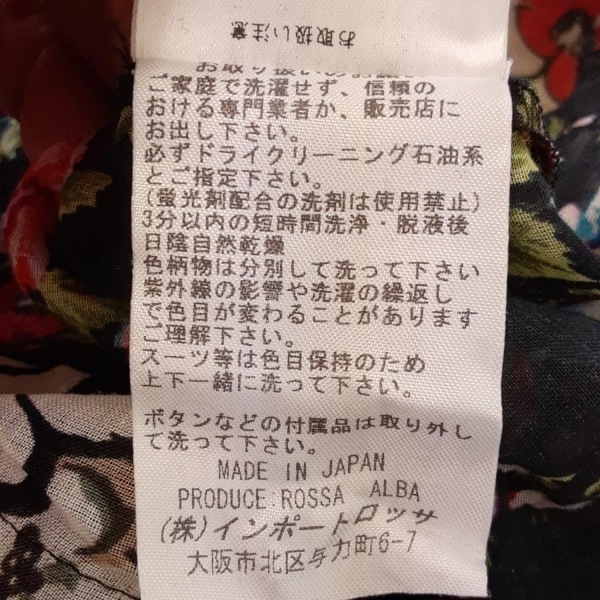 お取扱い注意
お取り扱いのお願い
ご家庭で洗濯せず、信頼の
おける専門業者か、販売店に
お出し下さい。
必ずドライクリーニング石油系
とご指定下さい。
(蛍光剤配合の洗剤は使用禁止)
3分以内の短時間洗浄・脱液後
日陰自然乾燥
色柄物は分別して洗って下さい
紫外線の影響や洗濯の繰返し
で色目が変わることがあります
ご理解下さい。
スーツ等は色目保持のため
上下一緒に洗って下さい。
ボタンなどの付属品は取り外し
て洗って下さい。
MADE IN JAPAN
PRODUCE ROSSA ALBA
(株)インポートロッサ
大阪市北区与力町6-7